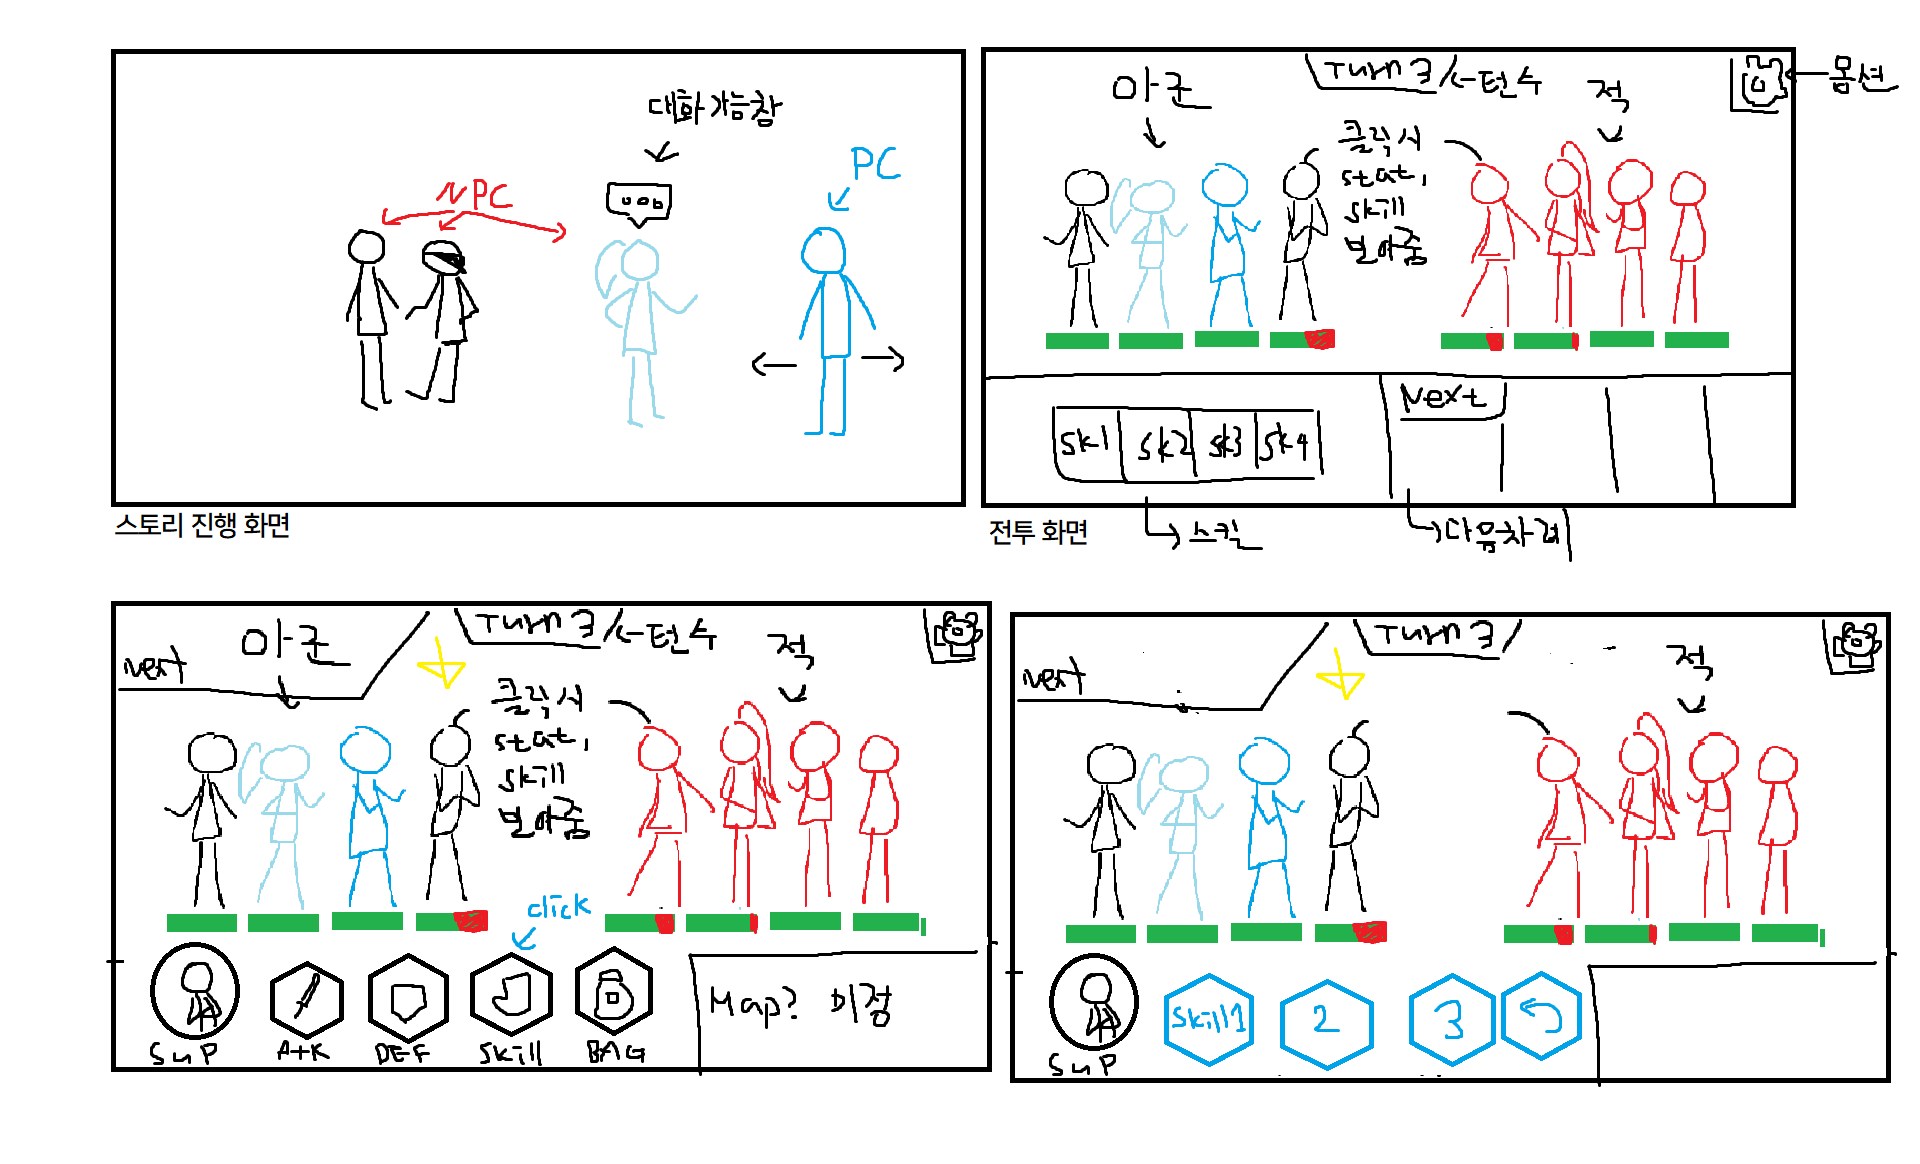 대화가능창
NPC
PC
스토리 진행 화면
아군
Turn 3
←턴수
적
옵션
클릭시
stat,
skill
보여줌
Sk1
Sk2
Sk3
Sk4
Next
→스킬
→다음차례
전투 화면
Next
아군
Turn 3
←턴수
적
클릭시
stat,
skill
보여줌
click
SuP
AtK
DEF
Skill
BAG
Map? 미정
Next
Turn 3
적
SuP
Skill1
2
3